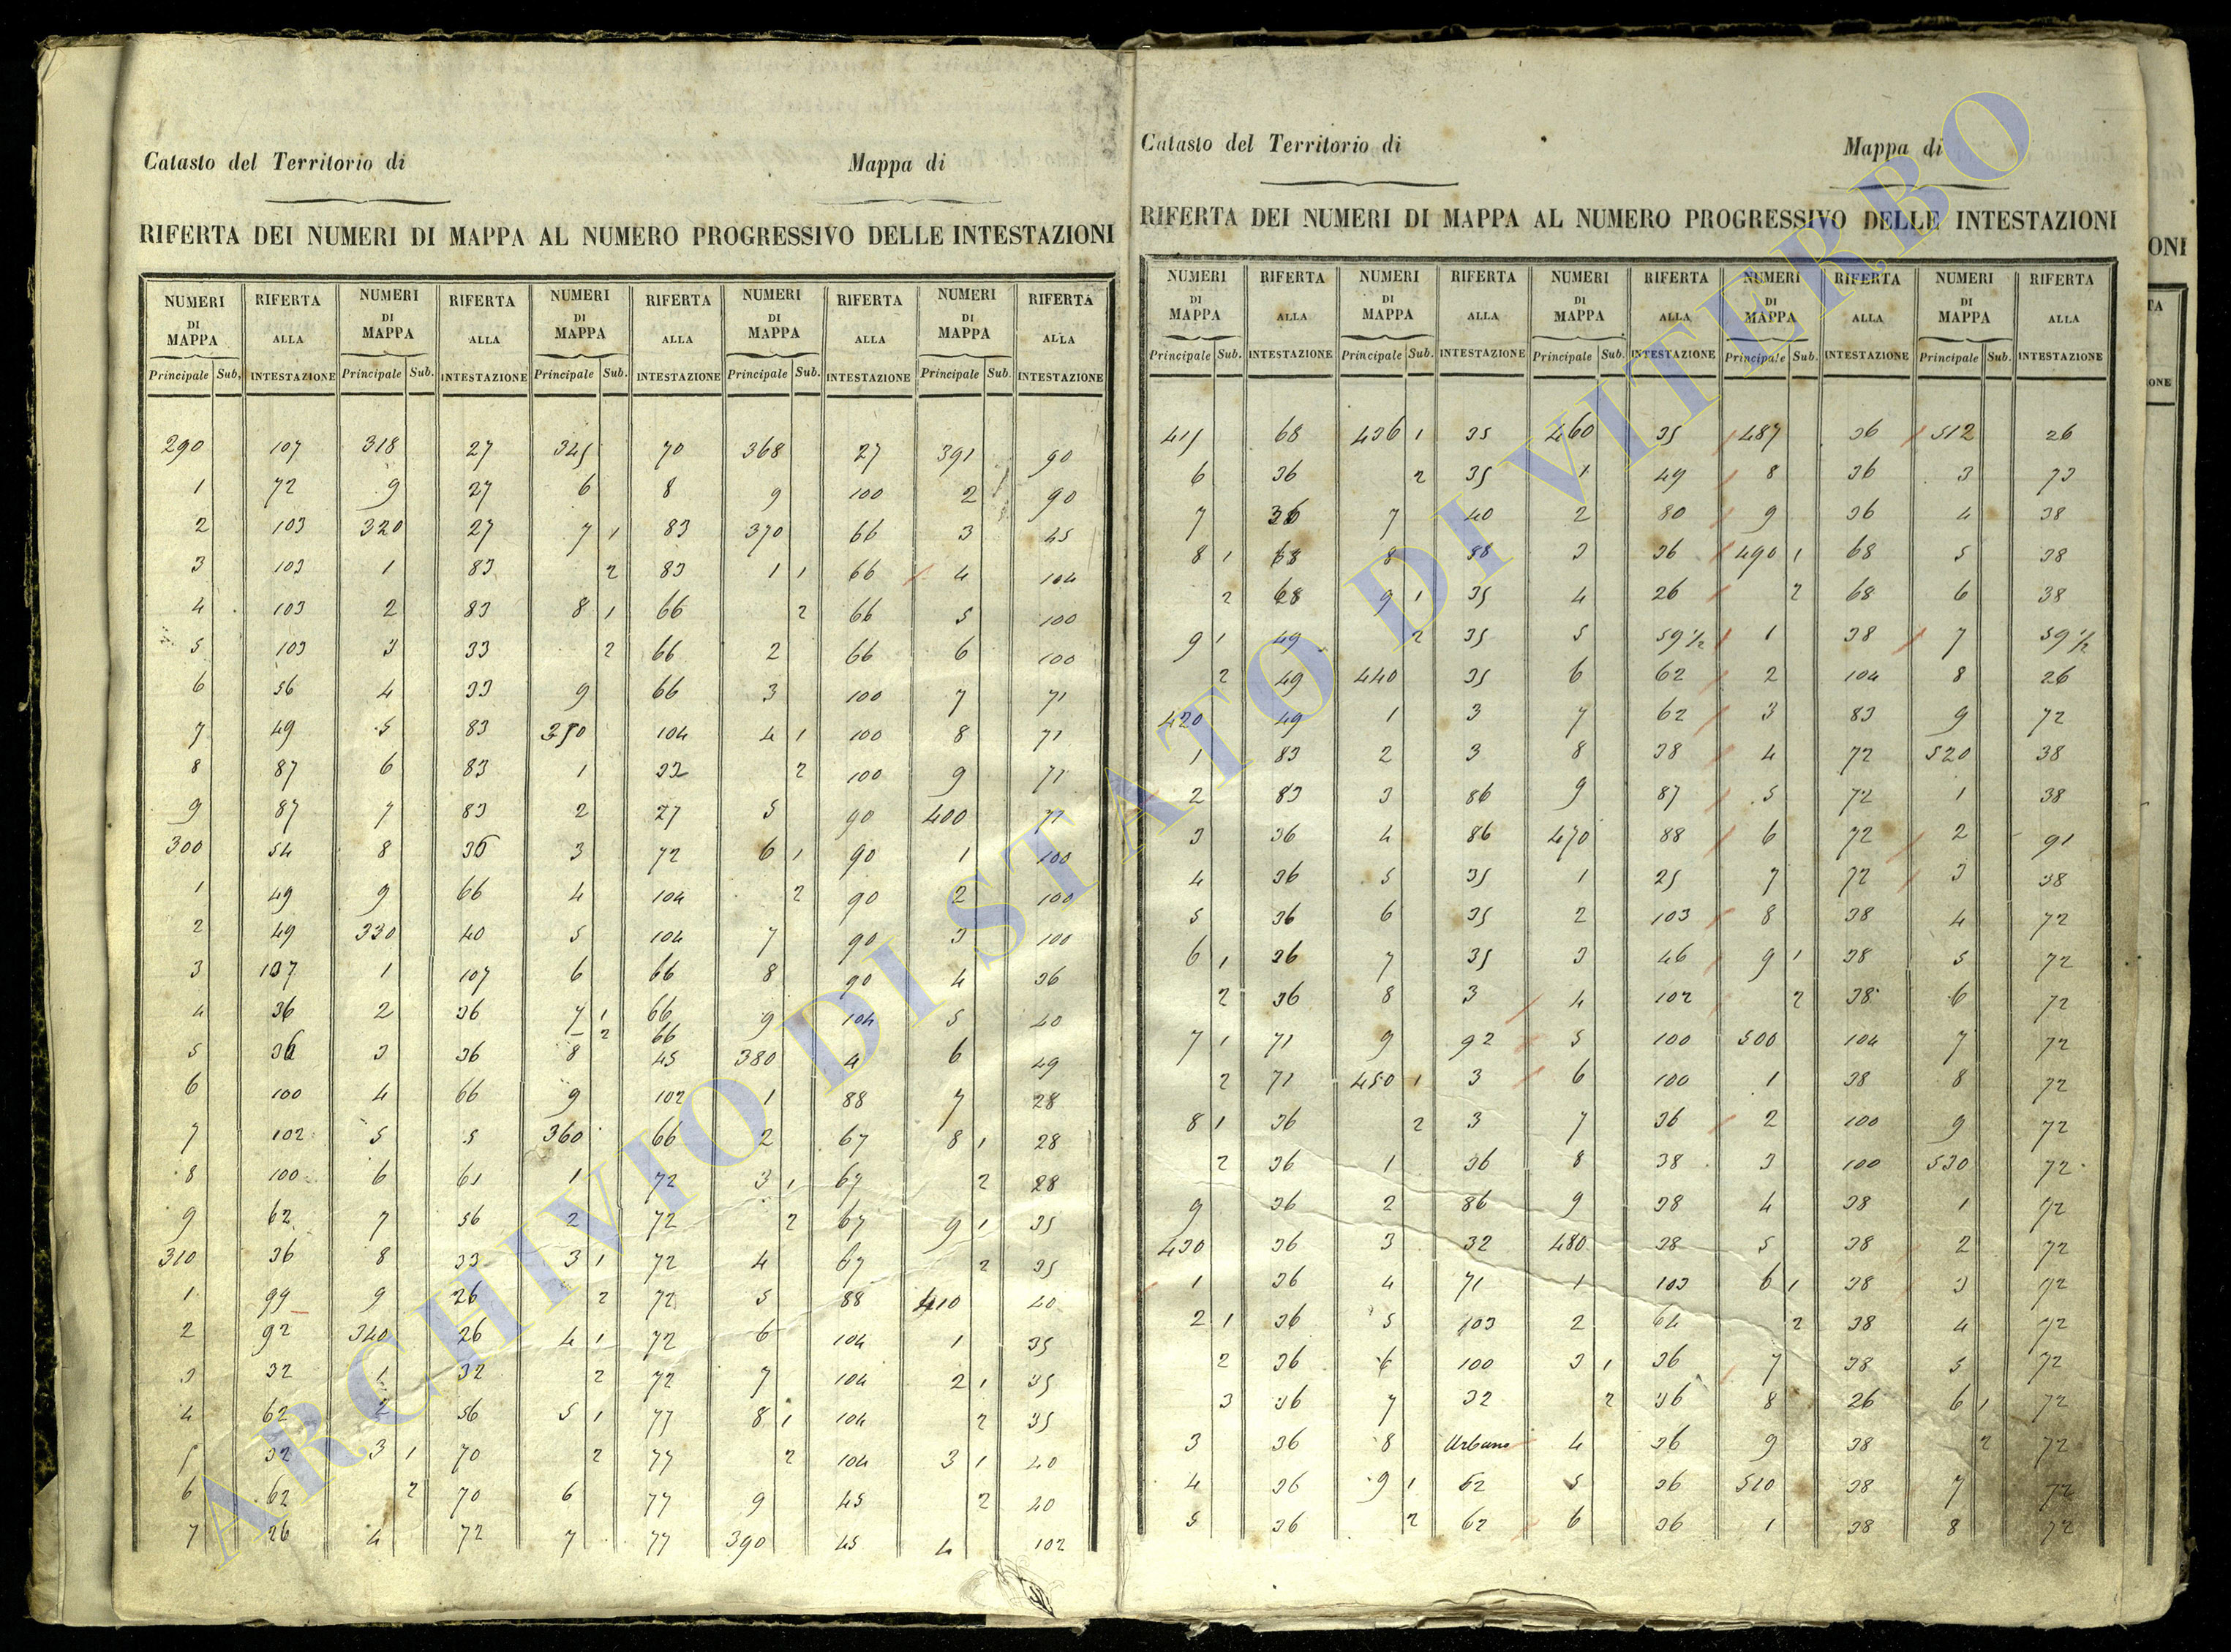 Catasto del Territorio di Mappa di
RIFERTA DEI NUMERI DI MAPPA AL NUMERO PROGRESSIVO DELLE INTESTAZIONI
NUMERI RIFERTA NUMERI RIFERTA NUMERI RIFERTA NUMERI RIFERTA NUMERI RIFERTA
DI DI DI DI DI
MAPPA ALLA MAPPA ALLA MAPPA ALLA MAPPA ALLA MAPPA ALLA
Principale Sub. INTESTAZIONE Principale Sub. INTESTAZIONE Principale Sub. INTESTAZIONE Principale Sub. INTESTAZIONE Principale Sub. INTESTAZIONE
290 107 318 27 345 70 368 27 391 90
1 72 9 27 6 8 9 100 2 90
2 103 320 27 7 1 83 370 66 3 45
3 103 1 83 2 83 1 1 66 4 104
4 103 2 83 8 1 66 2 66 5 100
5 103 3 33 2 66 2 66 6 100
6 56 4 33 9 66 3 100 7 71
7 49 5 83 350 104 4 1 100 8 71
8 87 6 83 1 32 2 100 9 71
9 87 7 83 2 27 5 90 400 71
300 54 8 36 3 72 6 1 90 1 100
1 49 9 66 4 104 2 90 2 100
2 49 330 40 5 104 7 90 3 100
3 107 1 107 6 66 8 90 4 36
4 36 2 36 7 1 66 9 104 5 40
2 66
5 36 3 36 8 45 380 4 6 49
6 100 4 66 9 102 1 88 7 28
7 102 5 5 360 66 2 67 8 1 28
8 100 6 61 1 72 3 1 67 2 28
9 62 7 56 2 72 2 67 9 1 35
310 36 8 33 3 1 72 4 67 2 35
1 99 9 26 2 72 5 88 410 40
2 92 340 26 4 1 72 6 104 1 35
3 32 1 32 2 72 7 104 2 1 35
4 62 2 56 5 1 77 8 1 104 2 35
5 32 3 1 70 2 77 2 104 3 1 40
6 62 2 70 6 77 9 45 2 40
7 26 4 72 7 77 390 45 4 102
Catasto del Territorio di Mappa di
RIFERTA DEI NUMERI DI MAPPA AL NUMERO PROGRESSIVO DELLE INTESTAZIONI
NUMERI RIFERTA NUMERI RIFERTA NUMERI RIFERTA NUMERI RIFERTA NUMERI RIFERTA
DI DI DI DI DI
MAPPA ALLA MAPPA ALLA MAPPA ALLA MAPPA ALLA MAPPA ALLA
Principale Sub. INTESTAZIONE Principale Sub. INTESTAZIONE Principale Sub. INTESTAZIONE Principale Sub. INTESTAZIONE Principale Sub. INTESTAZIONE
415 68 436 1 35 460 35 487 36 512 26
6 36 2 35 1 49 8 36 3 73
7 36 7 40 2 80 9 36 4 38
8 1 68 8 88 3 36 490 1 68 5 38
2 68 9 1 35 4 26 2 68 6 38
9 1 49 2 35 5 59 1/2 1 38 7 59 1/2
2 49 440 35 6 62 2 104 8 26
420 49 1 3 7 62 3 83 9 72
1 83 2 3 8 38 4 72 520 38
2 83 3 86 9 87 5 72 1 38
3 36 4 86 470 88 6 72 2 91
4 36 5 35 1 25 7 72 3 38
5 36 6 35 2 103 8 38 4 72
6 1 36 7 35 3 46 9 1 38 5 72
2 36 8 3 4 102 2 38 6 72
7 1 71 9 92 5 100 500 104 7 72
2 71 450 1 3 6 100 1 38 8 72
8 1 36 2 3 7 36 2 100 9 72
2 36 1 36 8 38 3 100 530 72
9 36 2 86 9 38 4 38 1 72
430 36 3 32 480 38 5 38 2 72
1 36 4 71 1 103 6 1 38 3 72
2 1 36 5 103 2 64 2 38 4 72
2 36 6 100 3 1 36 7 38 5 72
3 36 7 32 2 36 8 26 6 1 72
3 36 8 Urbano 4 36 9 38 2 72
4 36 9 1 62 5 36 510 38 7 72
5 36 2 62 6 36 1 38 8 72
ONI
TA
ONE
ARCHIVIO DI STATO DI VITERBO